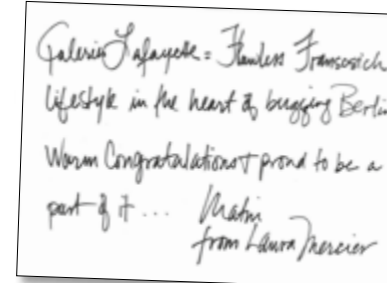 Galeries Lafayette = Flawless
lifestyle in the heart of Berlin
Warm Congratulations + proud to be a
part of it ...
from Laura Mercier